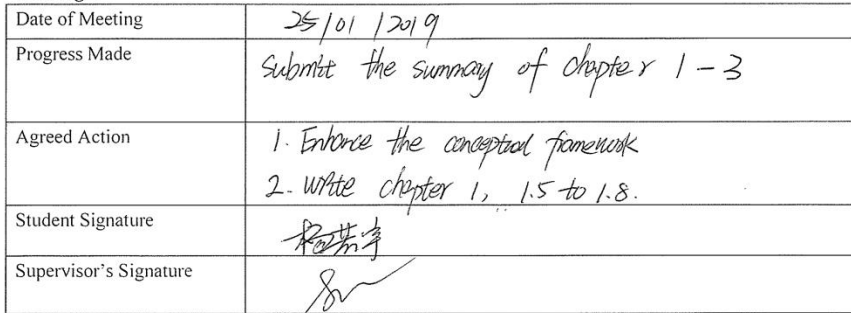 Date of Meeting 25/01/2019
Progress Made submit the summary of chapter 1-3
Agreed Action 1. Enhance the conceptual framework
2. write chapter 1, 1.5 to 1.8.
Student Signature
Supervisor's Signature